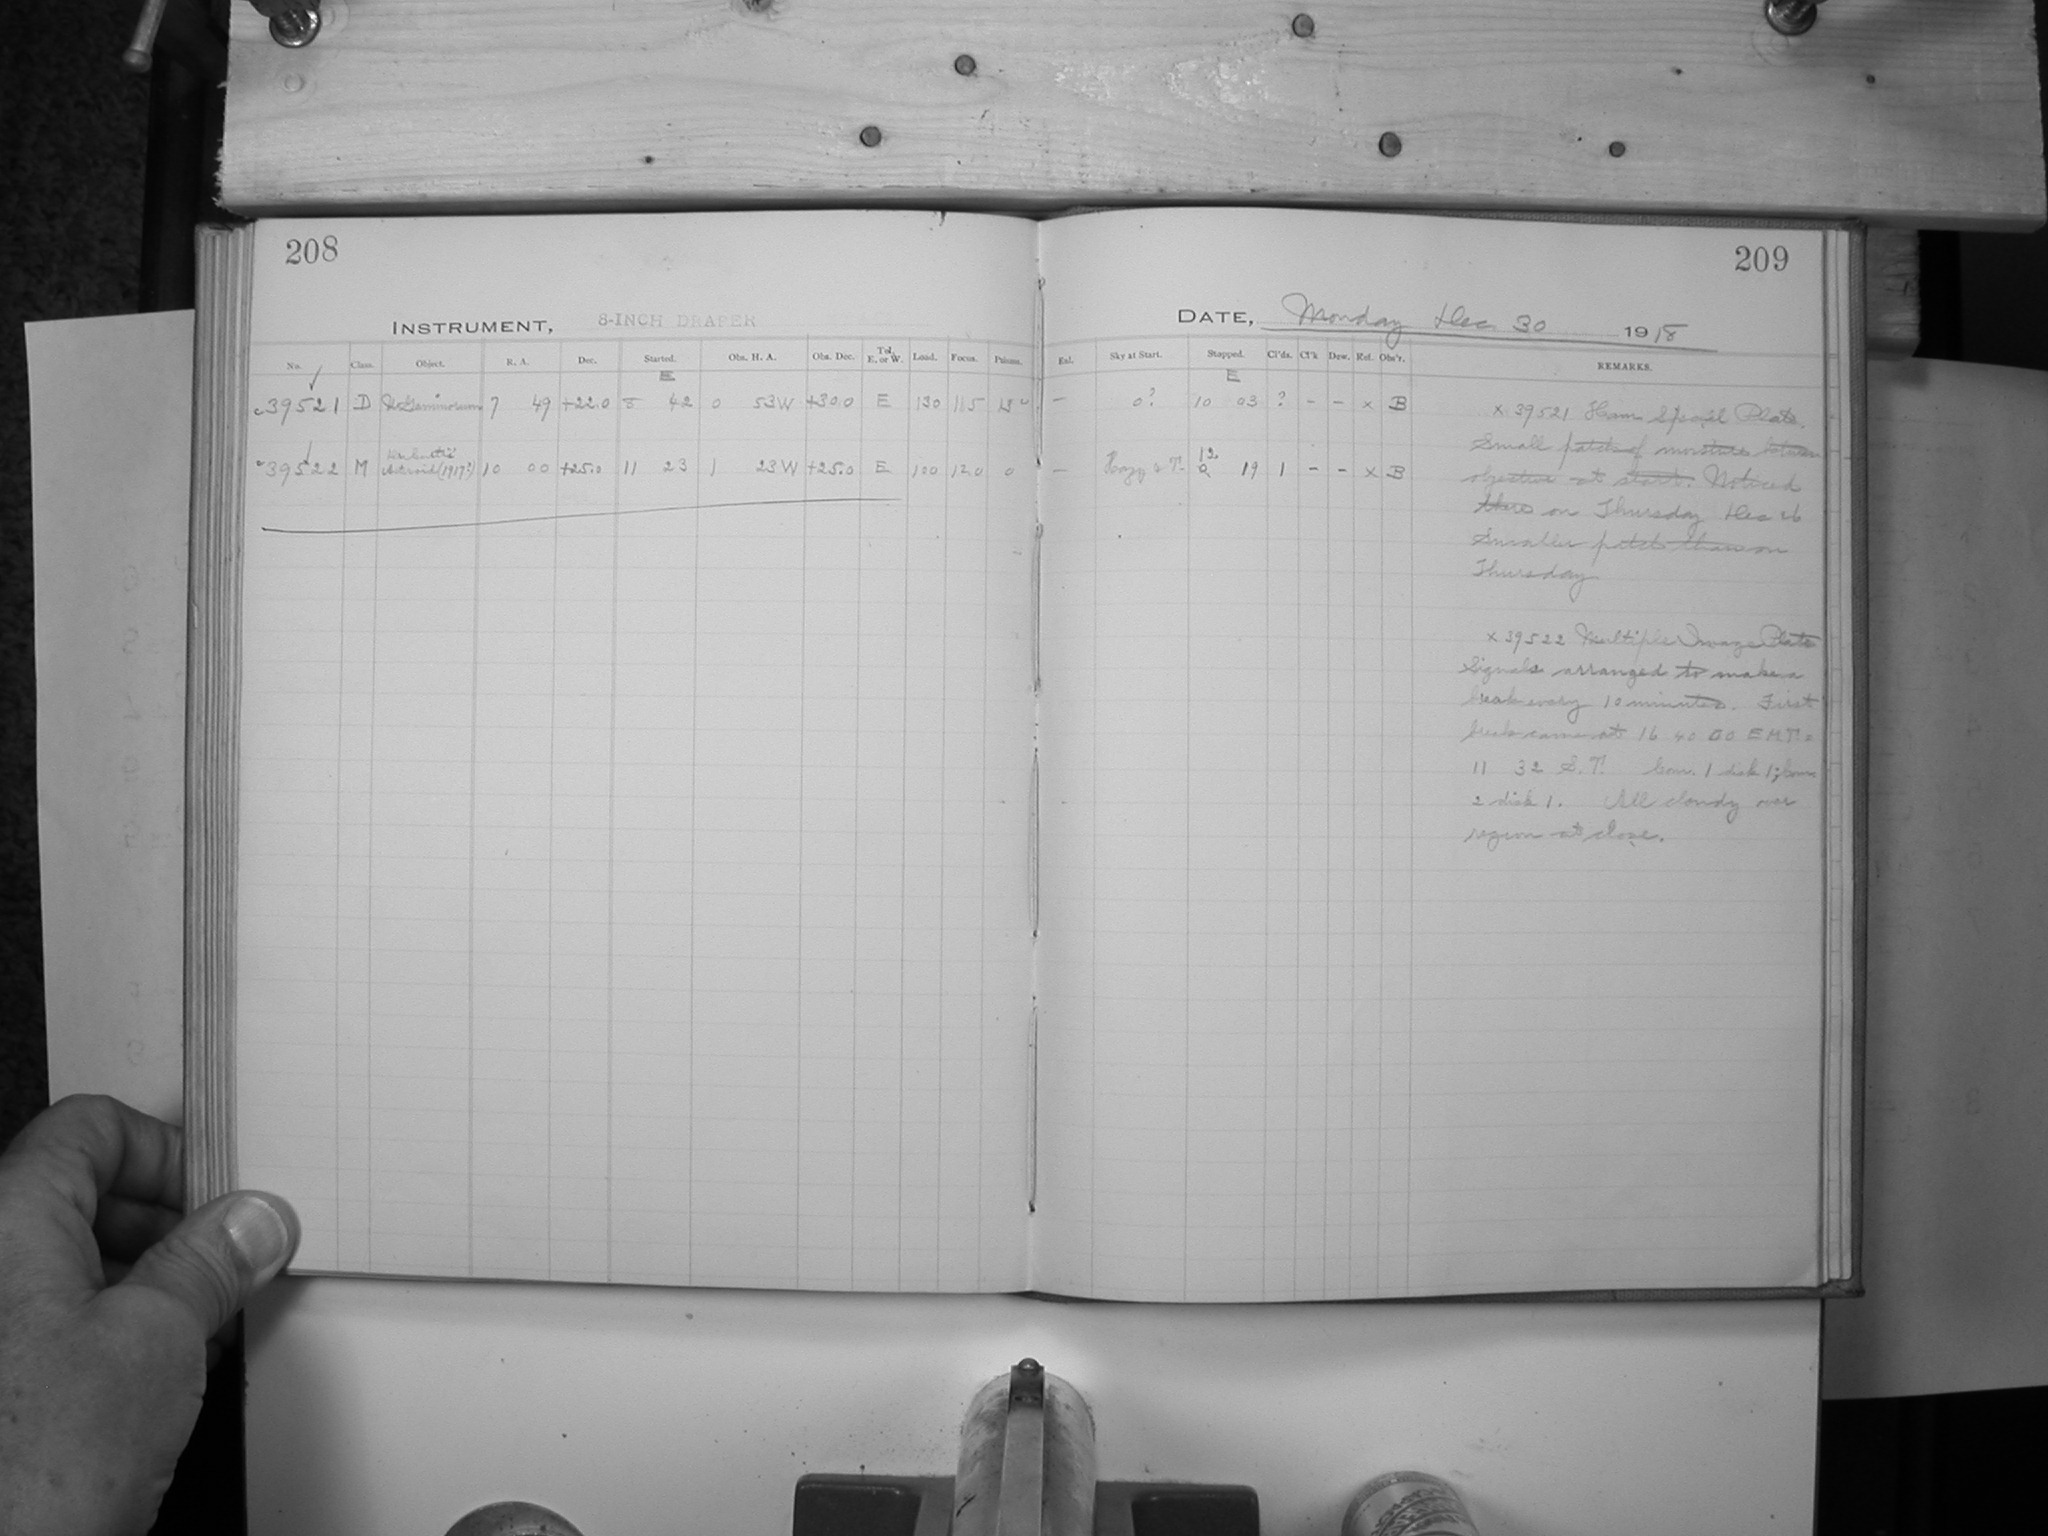 208
INSTRUMENT, 8-INCH DRAPER
No. Class. Object. R. A. Dec. Started. Obs. H. A. Obs. Dec. Tel. E. or W. Load. Focus. Prisms.
E
c39521 D Geminorum 7 49 +22.0 8 42 0 53W +30.0 E 130 11.5
39522 M Asteroid (1917?) 10 00 +25.0 11 23 1 23W +25.0 E 100 12.0 0
209
DATE, Monday Dec. 30 1918
Sky at Start. Stopped. Cl'ds. Cl'k Dew. Ref. Obs'r. REMARKS.
E
— 0? 10 03 ? – – x B
— Hazy & T. 12 19 1 – – x B
x 39521 Ham Special Plate.
Small patch of moisture between
objective at start. Noticed
there on Thursday Dec 26
Smaller patch than on
Thursday
x 39522 Multiple Image Plate
Signals arranged to make a
break every 10 minutes. First
break came at 16 40 00 EMT =
11 32 S.T. Com. 1 disk 1; Com.
2 disk 1. All cloudy over
region at close.